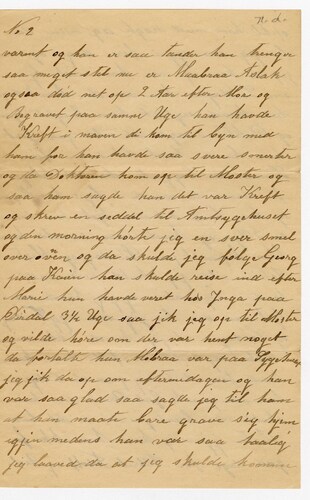 n.d.
No 2
varmt og han er saa tander han trenger
saa meget stel nu er Maabraa Aslak
ogsaa död net op 2 Aar efter Moe og
Begravet paa samme Uge han havde
Kreft i maven de kom til byn med
ham for han havde saa svere smerter
og da Doktoren kom op til Moster og
saa ham sagde han det var Kreft
og skrev en seddel til Amtsygehuset
og den morning hörte jeg en sver smel
over oven og da skulde jeg fölge Georg
paa Kaien han skulde reise ind efter
Marie hun havde veret hos Inga paa
3½ Uge saa jik jeg op til Moster
og vilde höre om der var hent noget
da fortalte hun Mobraa var paa
jeg jik da op om eftermidagen og han
var saa glad saa sagde jeg til ham
at han maate bare grave sig hjem
igjen medens han var saa daalig
jeg laaved da at jeg skulde komme